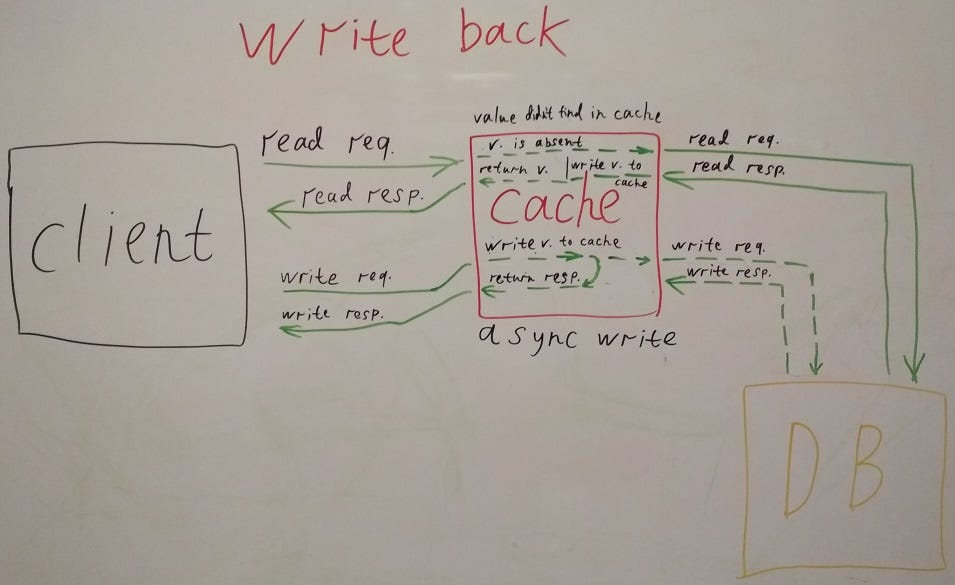 Write back
value didn't find in cache
read req.
v. is absent
read req.
return v. | write v. to
cache
read resp.
read resp.
Cache
client
write v. to cache
write req.
write req.
return resp.
write resp.
write resp.
async write
DB